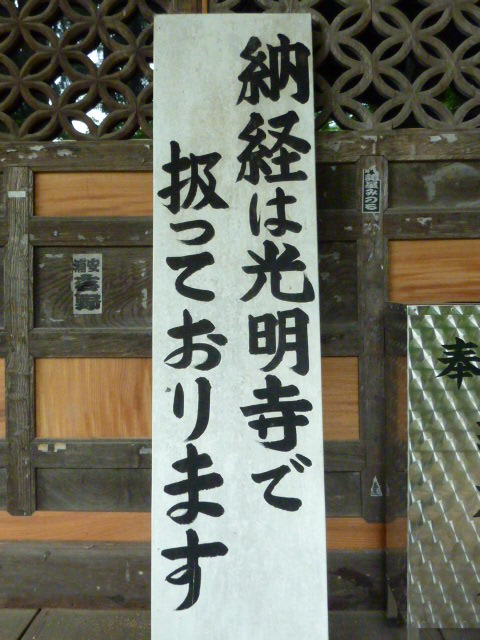 納経は光明寺で
扱っております
奉